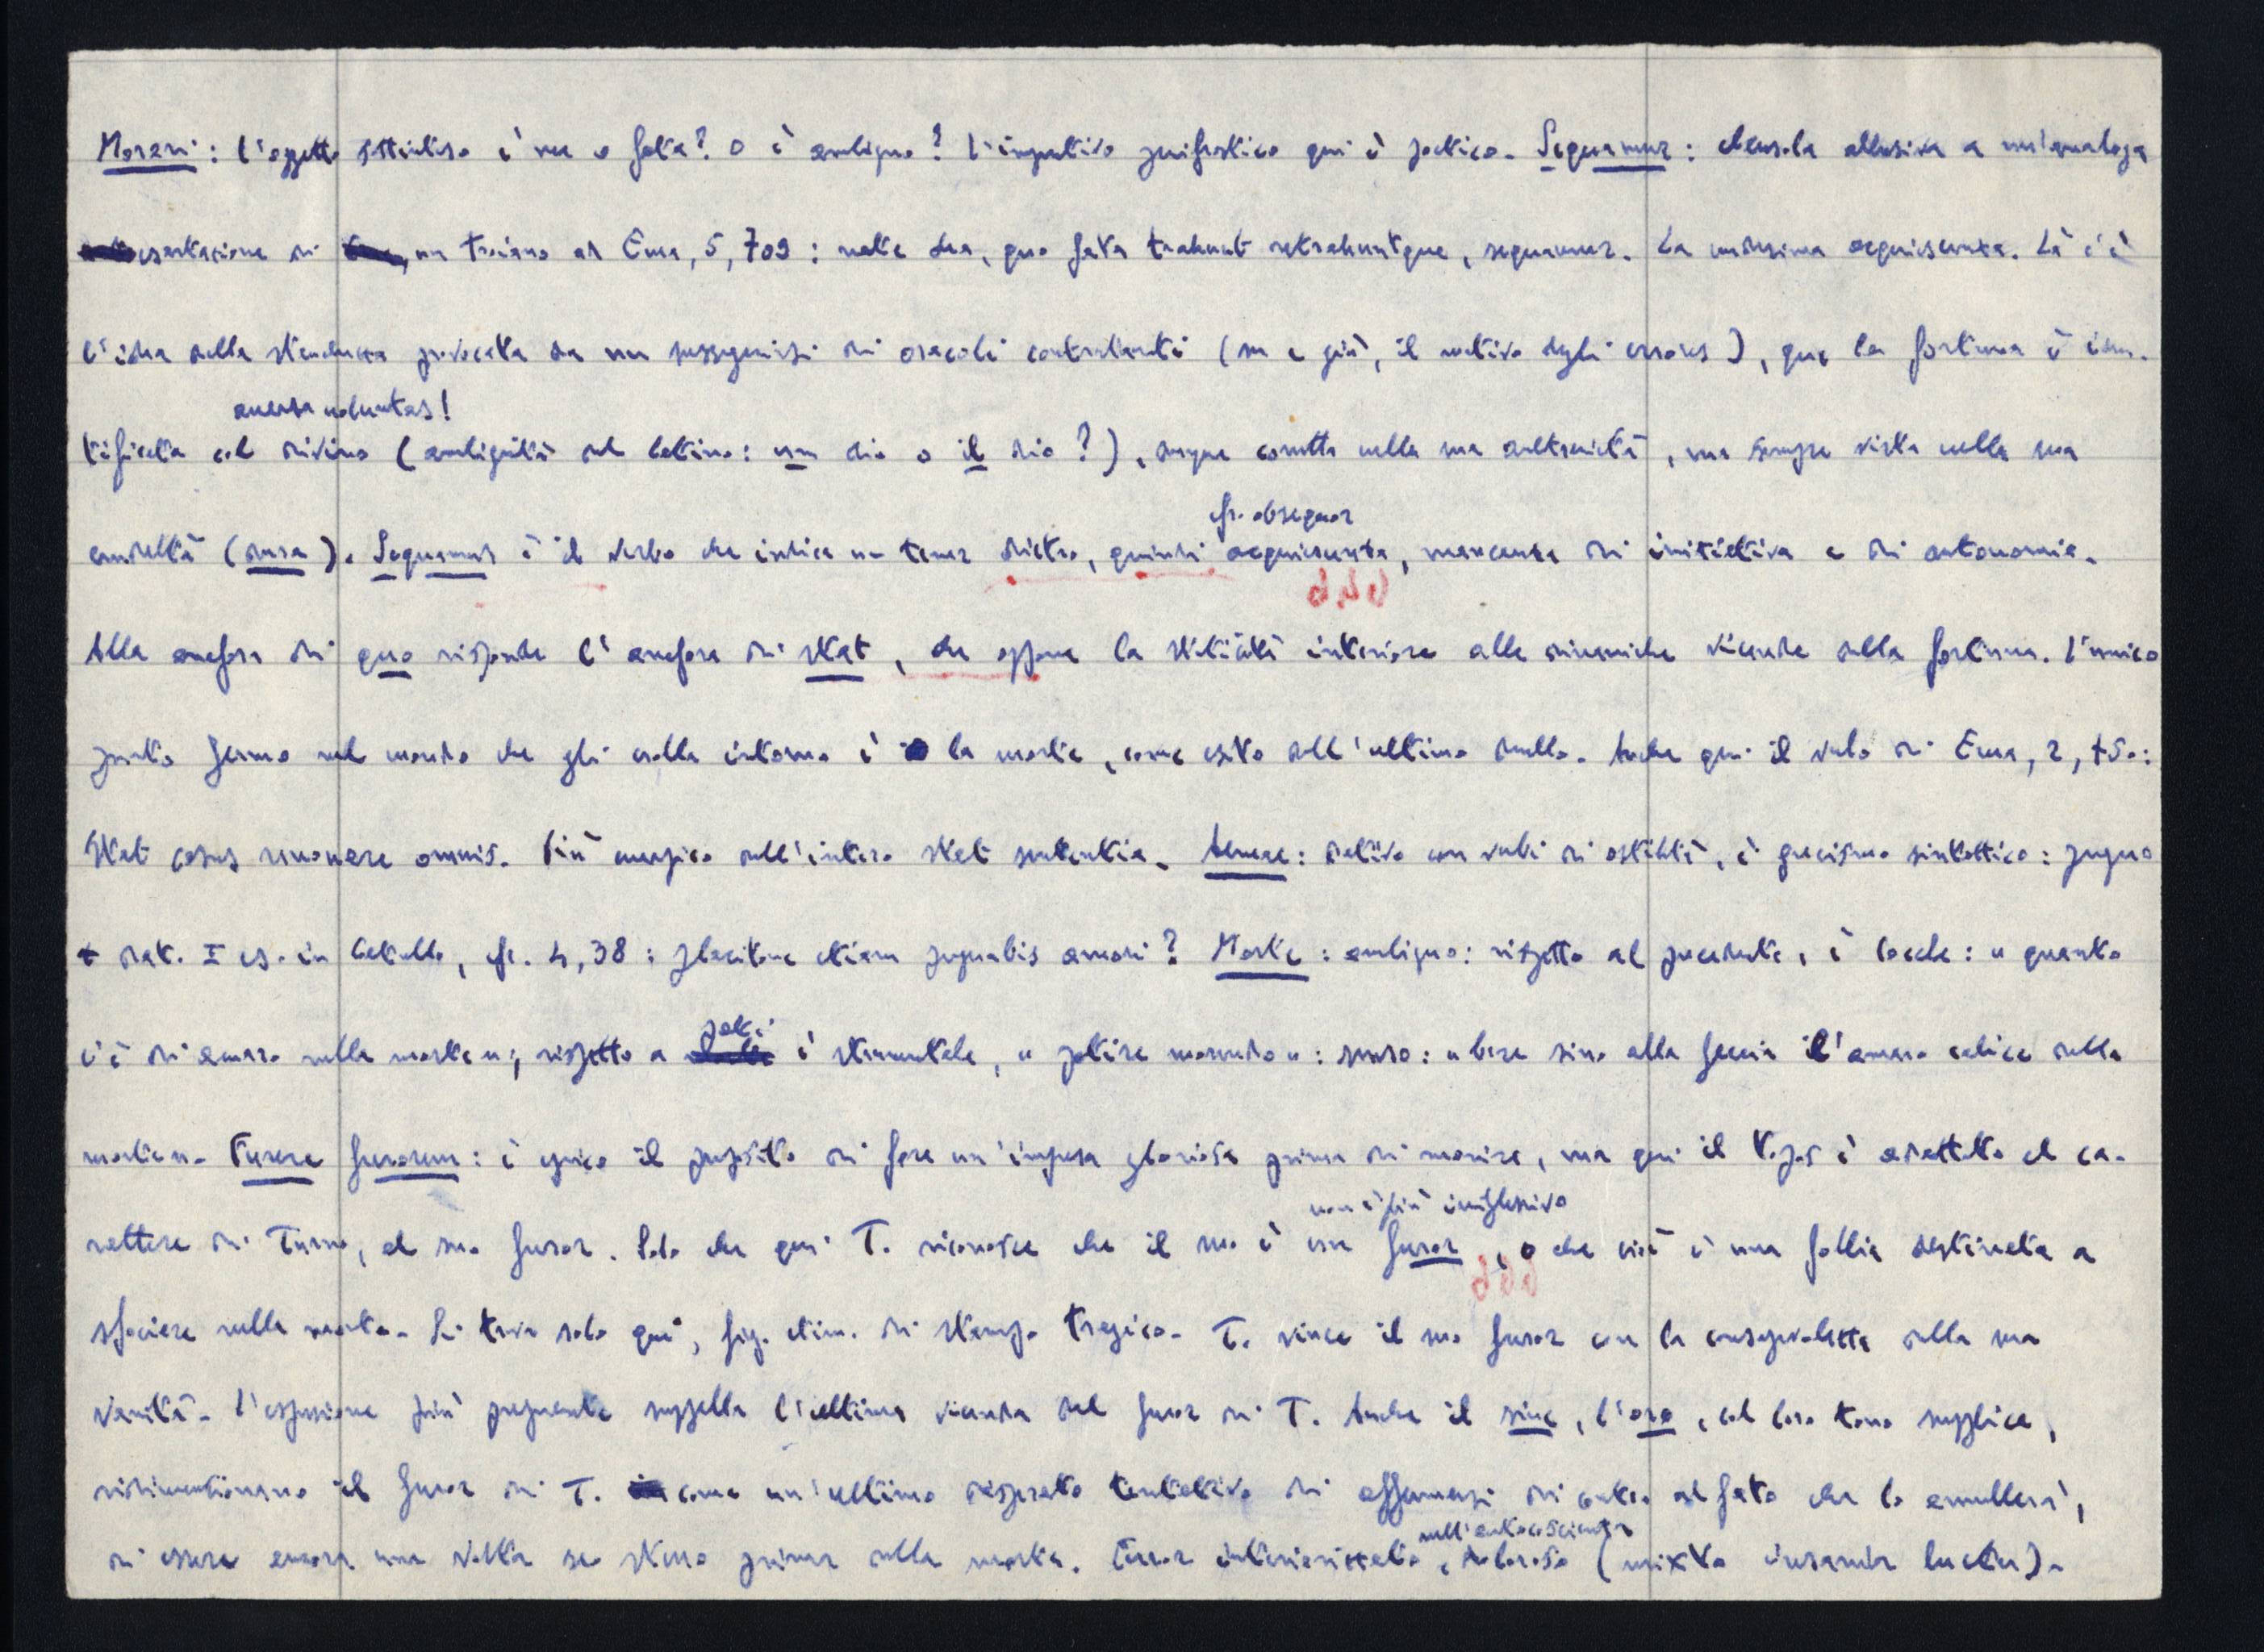 Morari: l'oggetto sottinteso è me o fata? o è ambiguo? L'imperativo perifrastico qui è poetico. Sequamur: clausola allusiva a un'analoga
esortazione di un troiano ad Enea, 5, 709: nate dea, quo fata trahunt retrahuntque, sequamur. La medesima acquiescenza. Là c'è
l'idea della stanchezza provocata da un susseguirsi di oracoli contrastanti (su e giù, il motivo degli errores), qua la fortuna è iden-
aversa voluntas!
tificata col divino (ambiguità del latino: un dio o il dio?), seppur corretta nella sua, ma sempre vista nella sua
crudeltà (dura). Sequamur è il verbo che indica un tener dietro, quindi acquiescenza, mancanza di iniziativa e di autonomia.
cfr. obsequor
Alla anafora di quo risponde l'anafora di stat, che oppone la staticità interiore alle dinamiche vicende della fortuna. L'unico
punto fermo nel mondo che gli crolla intorno è la morte, come esito dell'ultimo duello. Anche qui il verbo di Enea, 2, 750:
stat casus renovare omnis. Più energico dell'intero stat sententia. Aeneae: dativo con verbi di ostilità, è grecismo sintattico: pugno
+ dat. I es. in Catullo, cfr. 4, 38: placitone etiam pugnabis amori? Morte: ambiguo: rispetto al precedente, è locale: "quanto
pati
c'è di amaro nella morte"; rispetto a è strumentale, "patire morendo": senso: "bere sino alla feccia l'amaro calice della
morte". Furere furorem: è epico il proposito di fare un'impresa gloriosa prima di morire, ma qui il topos è adattato al ca-
non è più irriflessivo
rattere di Turno, al suo furor. Solo che qui T. riconosce che il suo è un furor, che cioè è una follia destinata a
sfociare nella morte. Si trova solo qui, fig. etim. di stampo tragico. T. vince il suo furor con la consapevolezza della sua
vanità. L'espressione più pregnante suggella l'ultima vicenda del furor di T. Anche il sine, l'oro, col loro tono supplice,
ridimensionano il furor di T. come un'ultimo disperato tentativo di affermarsi di contro al fato che lo annullerà,
nell'autocoscienza
di essere ancora una volta se stesso prima della morte. Furor interiorizzato, doloroso (mixto insania luctu).